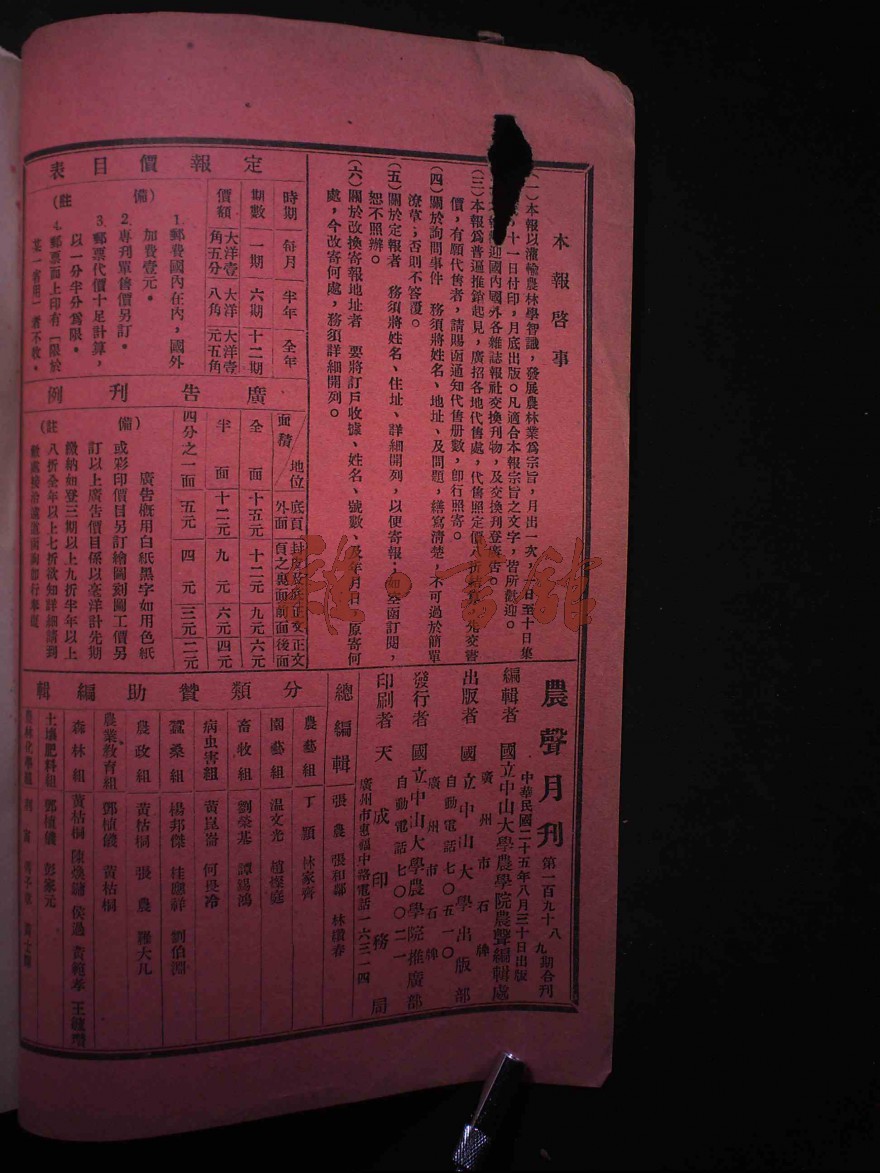 本報啓事
(一)本報以灌輸農林學智識,發展農林業爲宗旨,月出一次,
日至十日集
十一日付印,月底出版。凡適合本報宗旨之文字,皆所歡迎。
迎國內國外各雜誌報社交換刊物,及交換刊登廣告。
(三)本報爲普遍推銷起見,廣招各地代售處,代售照定價八折
先交書
價,有願代售者,請賜函通知代售册數,卽行照寄。
(四)關於詢問事件 務須將姓名、地址、及問題,繕寫清楚,不可過於簡單
潦草;否則不答覆。
(五)關於定報者 務須將姓名、住址、詳細開列,以便寄報;如空函訂閱,
恕不照辦。
(六)關於改換寄報地址者 要將訂戶收據、姓名、號數、及年月日、原寄何
處,今改寄何處,務須詳細開列。
定報價目表
時期 每月 半年 全年
期數 一期 六期 十二期
價額 大洋壹角五分 大洋八角 大洋壹元五角
(備註)
1.郵費國內在內,國外
加費壹元。
2.專刊單售價另訂。
3.郵票代價十足計算,
以一分半分爲限。
4.郵票面上印有「限於
某一省用」者不收。
廣告刊例
面積 地位 底頁外面 封皮及底頁之裏面 正文前面 正文後面
全面 十五元 十二元 九元 六元
半面 十二元 九元 六元 四元
四分之一面 五元 四元 三元 二元
(備註)
廣告概用白紙黑字如用色紙
或彩印價目另訂繪圖刻圖工價另
訂以上廣告價目係以毫洋計先期
繳納如登三期以上九折半年以上
八折全年以上七折欲知詳細請到
農聲月刊
第一百九十八 九期合刊
中華民國二十五年八月三十日出版
編輯者 國立中山大學農學院農聲編輯處
廣州市石牌
出版者 國立中山大學出版部
自動電話七〇五一〇
廣州市石牌
發行者 國立中山大學農學院推廣部
自動電話七〇〇二一
印刷者 天成印務局
廣州市惠福中路電話一六三二四
總編輯 張農 張和鄰 林纘春
分類贊助編輯
農藝組 丁頴 林家齊
園藝組 温文光 趙煙庭
畜牧組 劉榮基 譚錫鴻
病虫害組 黃崑崙 何畏冷
蠶桑組 楊邦傑 桂應祥 劉伯淵
農政組 黃枯桐 張農 羅大凡
農業教育組 鄭植儀 黃枯桐
森林組 黃枯桐 陳煥鏞 侯過 黃範孝
土壤肥料組 鄭植儀 彭家元
農林化學組